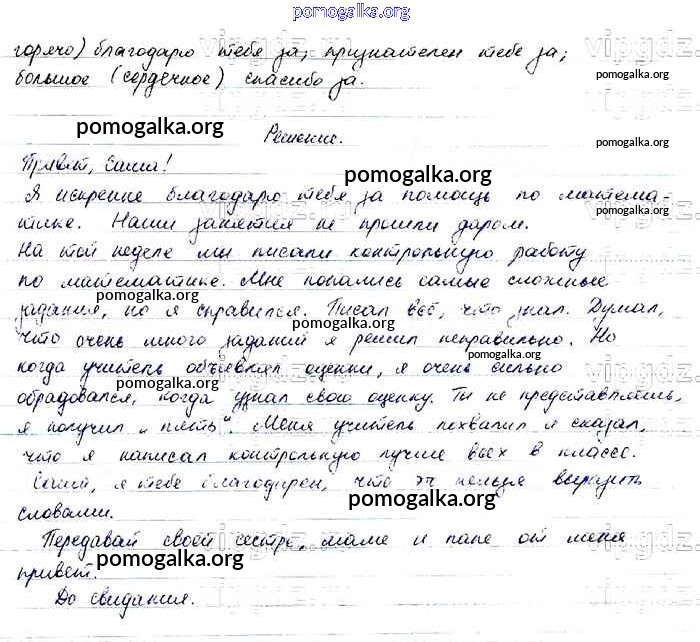 pomogalka.org
горячо) благодарю тебя за; признателен тебе за;
большое (сердечное) спасибо за.
Решение.
Привет, Саша!
Я искренне благодарю тебя за помощь по матема-
тике. Наши занятия не прошли даром.
На той неделе мы писали контрольную работу
по математике. Мне попались самые сложные
задания, но я справился. Писал всё, что знал. Думал,
что очень много заданий я решил неправильно. Но
когда учитель объявлял оценки, я очень сильно
обрадовался, когда узнал свою оценку. Ты не представляешь,
я получил „пять“. Меня учитель похвалил и сказал,
что я написал контрольную лучше всех в классе.
Саша, я тебе благодарен, что нельзя выразить
словами.
Передавай своей сестре, маме и папе от меня
привет.
До свидания.